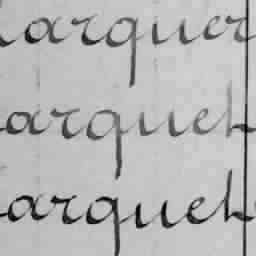 arquer
arquet
arquet